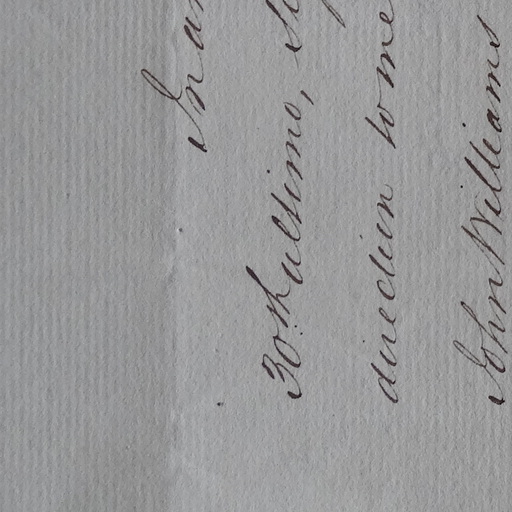 In an
30th ultimo,
direction to me
John Williams